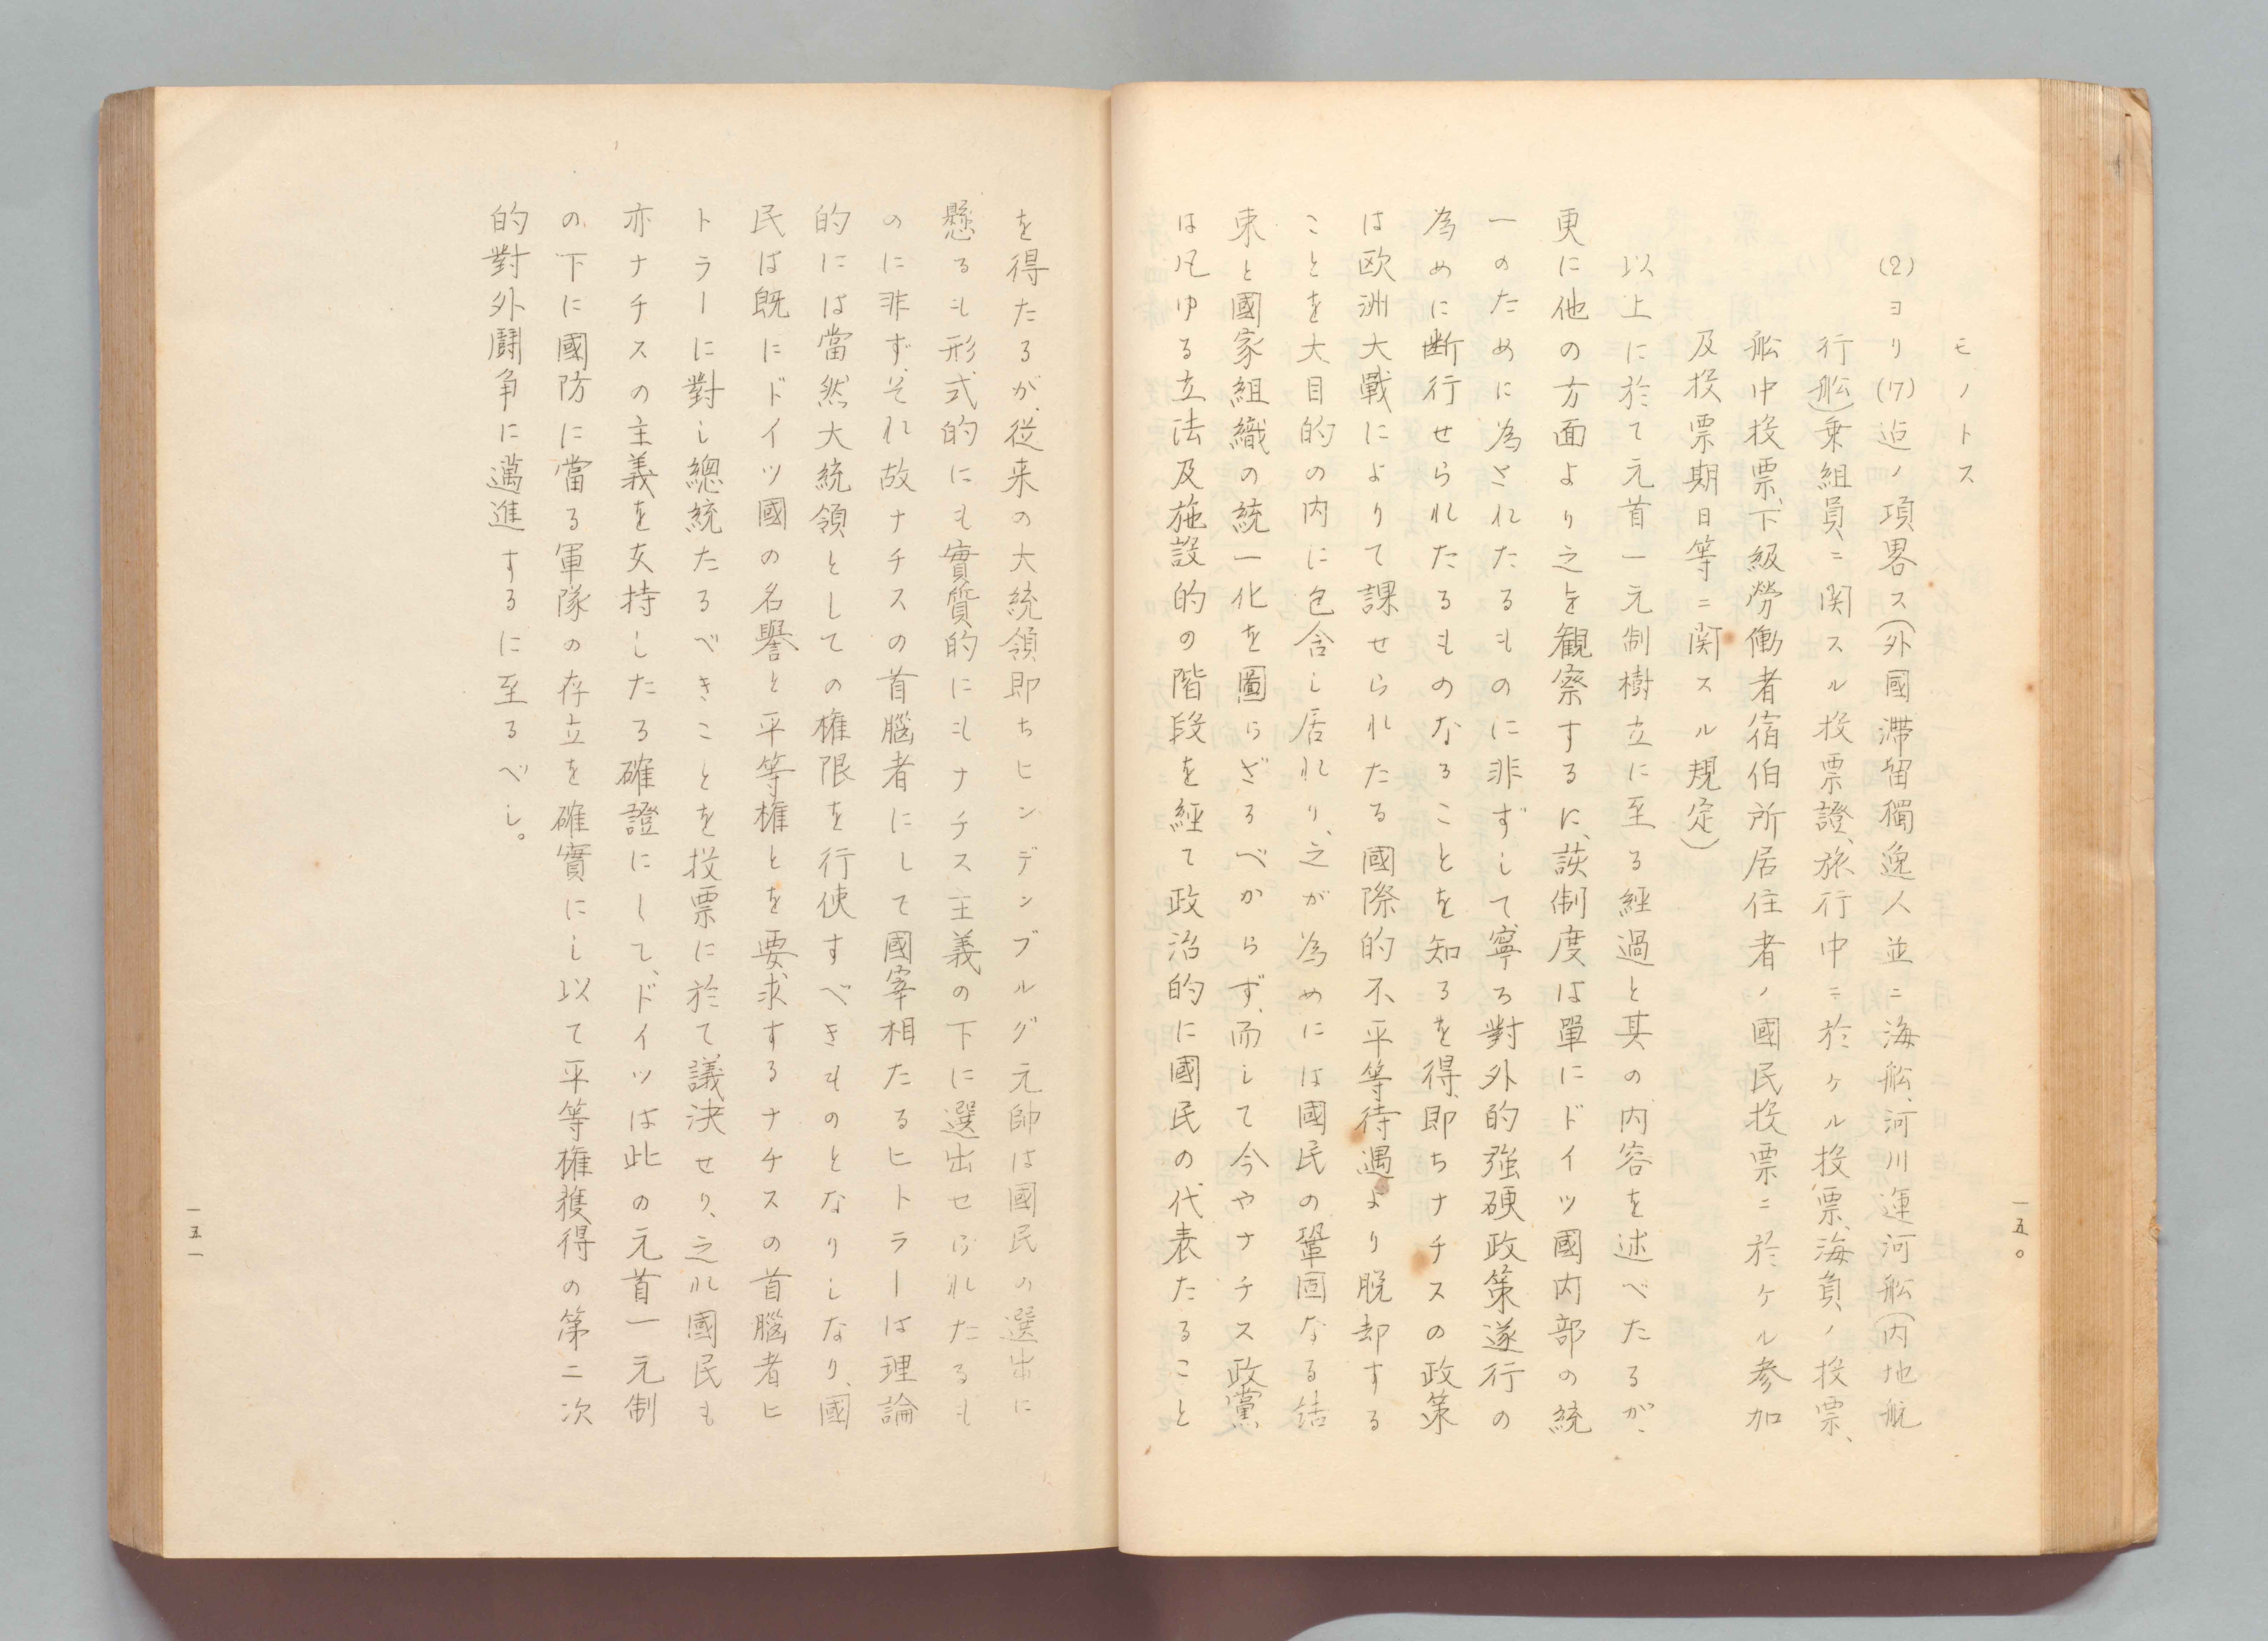 一五〇
モノトス
(2)ヨリ(17)迠ノ項畧ス(外國滯留獨逸人並ニ海舩、河川運河舩(内地航
行舩)乗組員ニ関スル投票證、旅行中ニ於ケル投票、海員ノ投票、
舩中投票、下級勞働者宿伯所居住者ノ國民投票ニ於ケル参加
及投票期日等ニ関スル規定)
以上に於て元首一元制樹立に至る經過と其の内容を述べたるが、
更に他の方面より之を観察するに、該制度は單にドイツ國内部の統
一のために為されたるものに非ずして、寧ろ對外的強硬政策遂行の
為めに断行せられたるものなることを知るを得、即ちナチスの政策
は欧洲大戰によりて課せられたる國際的不平等待遇より脱却する
ことを大目的の内に包含し居れり、之が為めには國民の鞏固なる結
束と國家組織の統一化を圖らざるべからず、而して今やナチス政黨
は凡ゆる立法及施設的の階段を經て政治的に國民の代表たること
を得たるが、従来の大統領即ちヒンデンブルグ元帥は國民の選出に
懸るも形式的にも實質的にもナチス主義の下に選出せられたるも
のに非ず、それ故ナチスの首腦者にして國宰相たるヒトラーは理論
的には當然大統領としての権限を行使すべきものとなりしなり、國
民は既にドイツ國の名譽と平等権とを要求するナチスの首腦者ヒ
トラーに對し總統たるべきことを投票に於て議決せり、之れ國民も
亦ナチスの主義を支持したる確證にして、ドイツは此の元首一元制
の下に國防に當る軍隊の存立を確實にし以て平等権獲得の第二次
的對外鬪争に邁進するに至るべし。
一五一